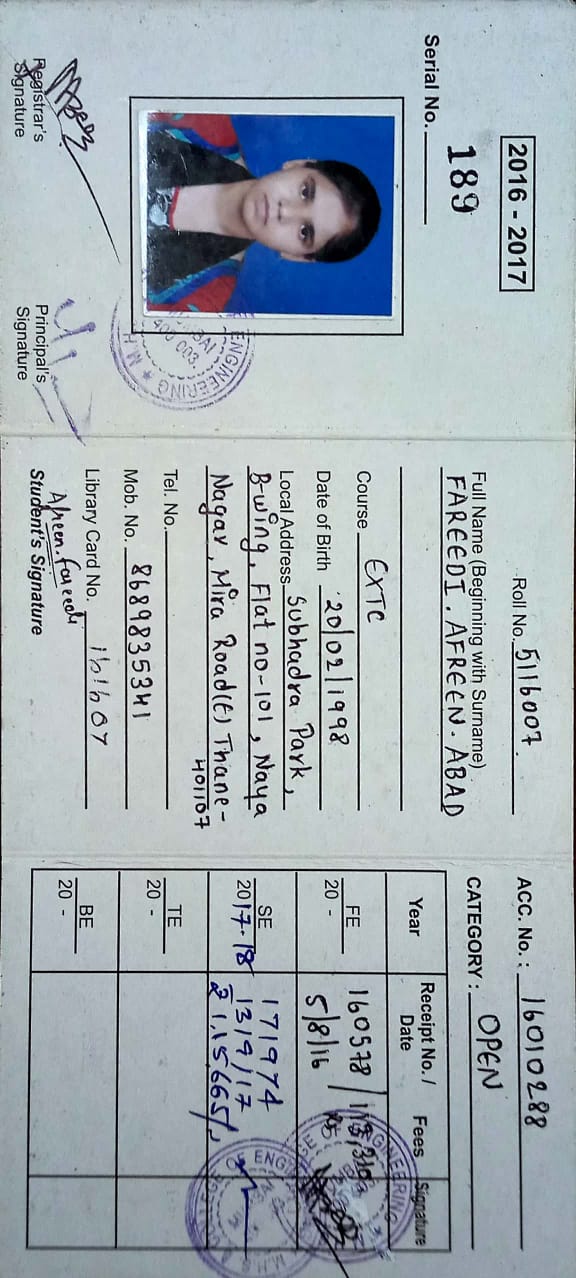 2016 - 2017
189
Serial No.
ENGINEERING ★ M.H.
400 003.
Registrar's
Signature
Principal's
Signature
Roll No. 5116007
Full Name (Beginning with Surname)
FAREEDI. AFREEN. ABAD
Course EXTC
Date of Birth 20/02/1998
Local Address Subhadra Park,
B-wing, Flat no-101, Naya
Nagar, Mira Road(E) Thane-
401107
Tel. No.
Mob. No. 8689835341
Library Card No. 161607
Afreen.Fareedi
Student's Signature
ACC. No.: 16010288
CATEGORY: OPEN
Year Receipt No. / Date Fees Signature
FE
20 -
160578
5/8/16
SE
2017-18
171974
13/9/17
1,15,665/-
TE
20 -
BE
20 -
ENGINEERING